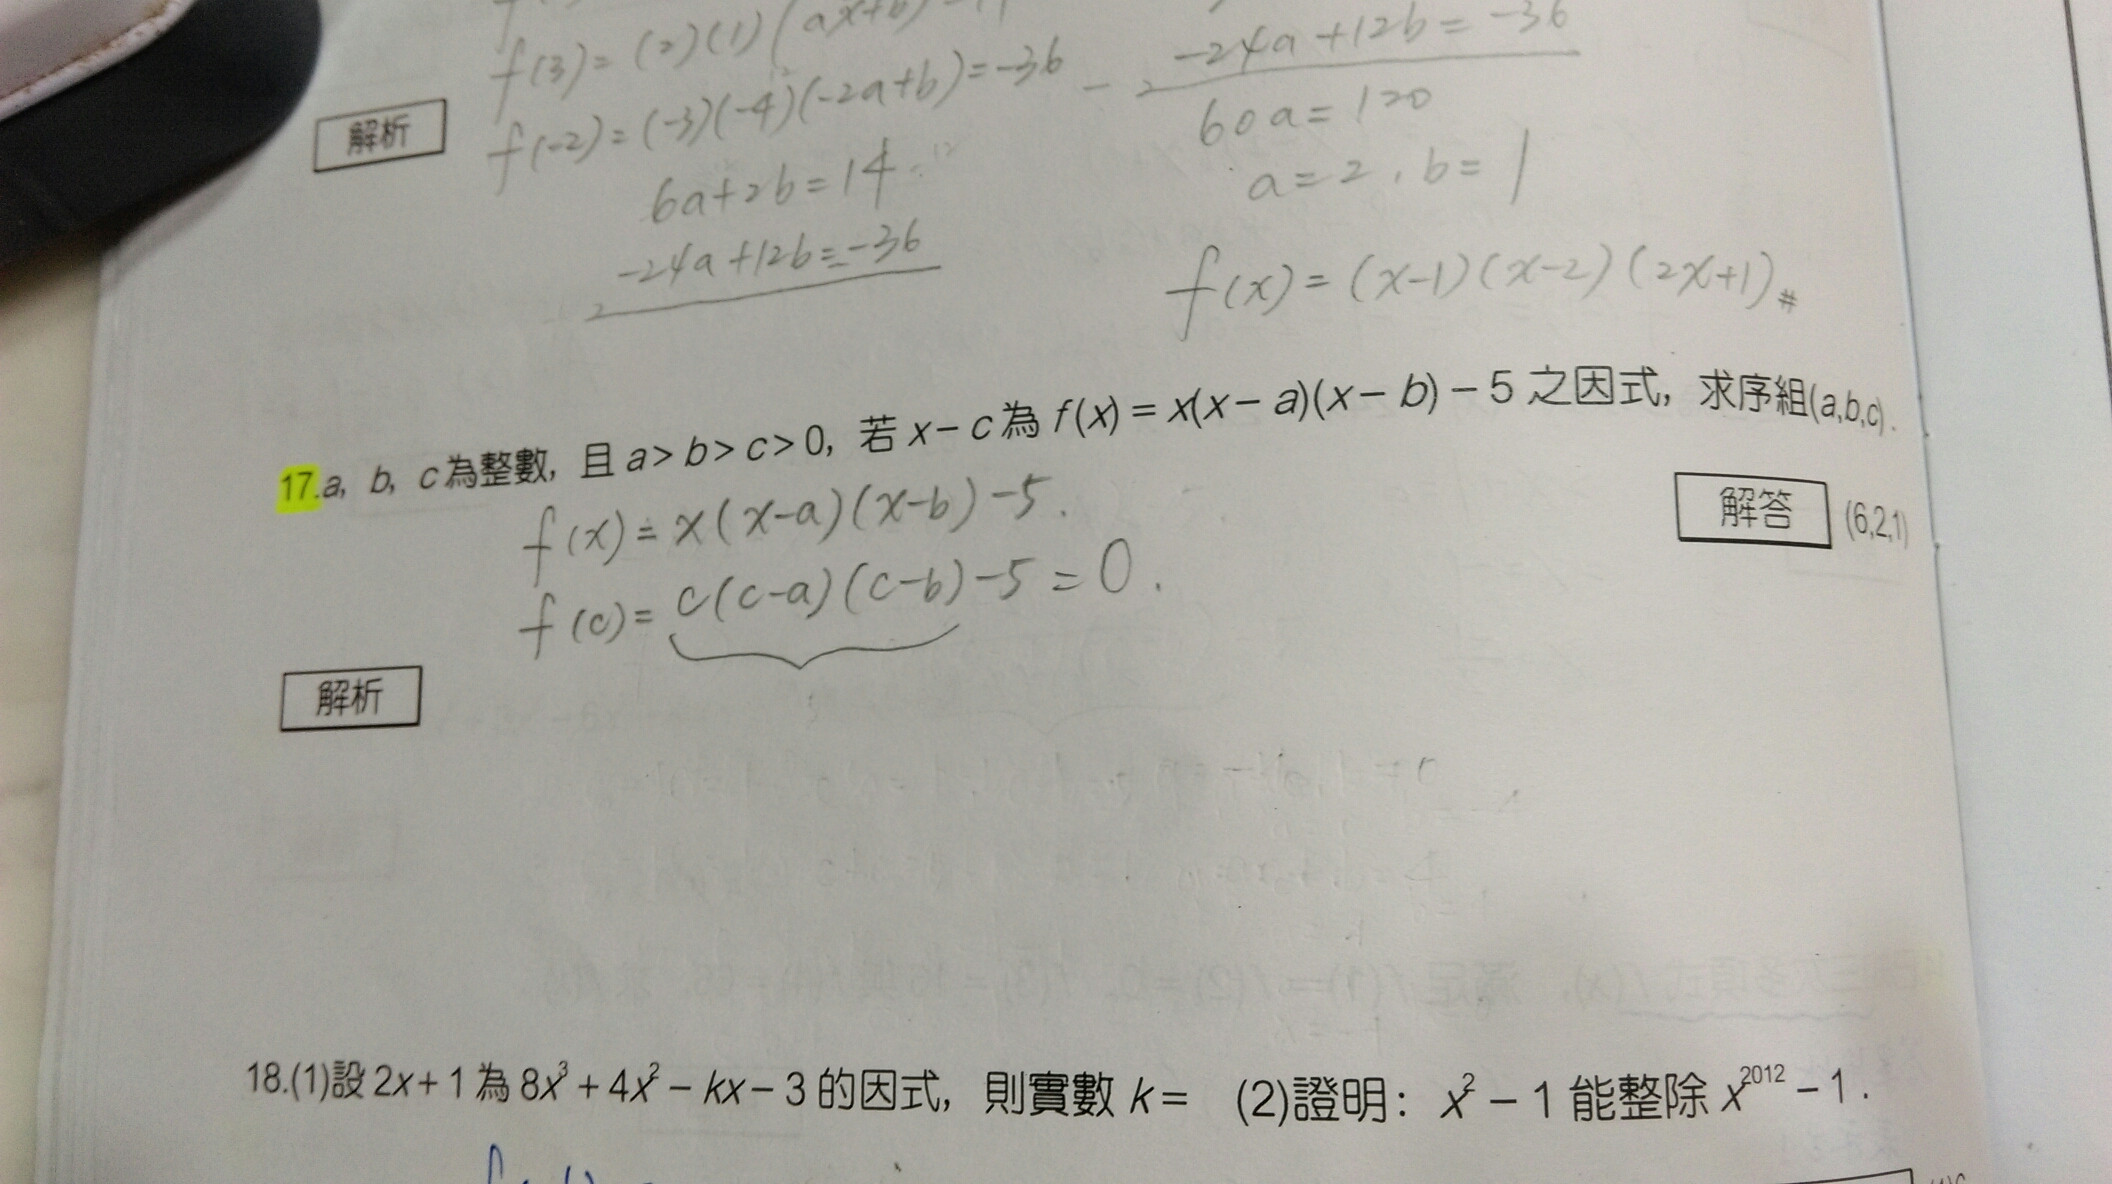 f(3)=(2)(1)(ax+b)
-24a+12b=-36
解析
f(-2)=(-3)(-4)(-2a+b)=-36
60a=120
6a+2b=14
a=2,b=1
-24a+12b=-36
f(x)=(x-1)(x-2)(2x+1)#
17.a, b, c為整數, 且 a>b>c>0, 若 x-c為 f(x)=x(x-a)(x-b)-5 之因式, 求序組(a,b,c).
f(x)=x(x-a)(x-b)-5.
解答 (6,2,1)
f(c)=c(c-a)(c-b)-5=0.
解析
18.(1)設 2x+1為 8x³+4x²-kx-3 的因式, 則實數 k= (2)證明: x²-1能整除 x²⁰¹²-1.